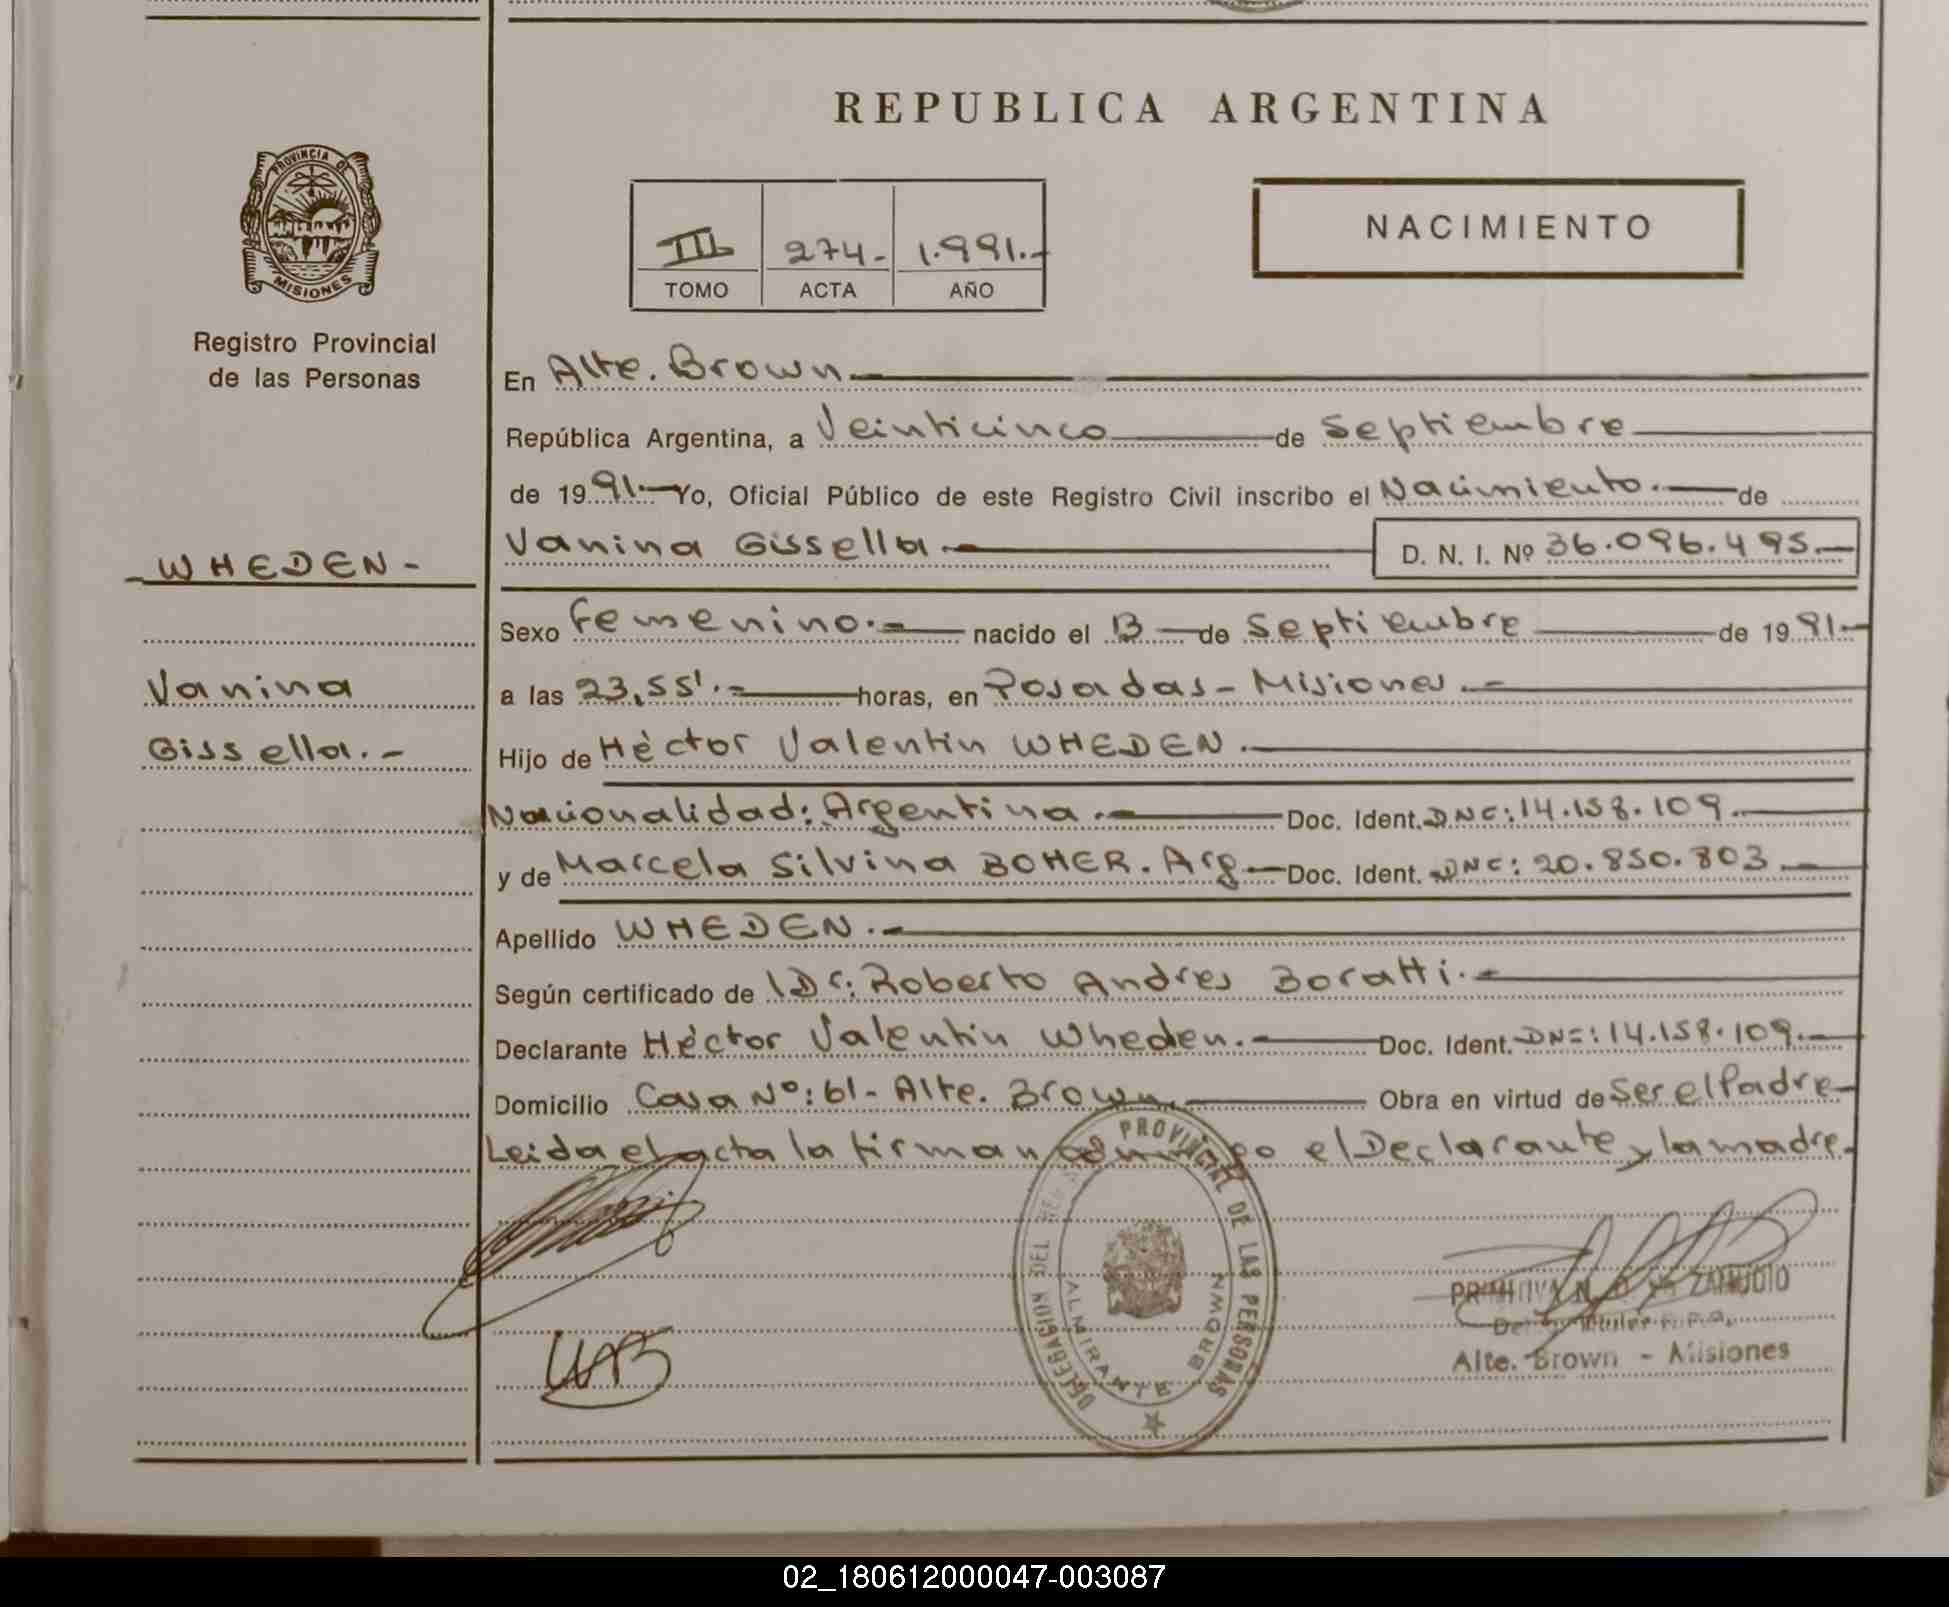 REPUBLICA ARGENTINA
PROVINCIA DE
MISIONES
Registro Provincial
de las Personas
III 274- 1.991.-
TOMO ACTA AÑO
NACIMIENTO
En Alte. Brown
República Argentina, a Veinticinco de Septiembre
de 1991.- Yo, Oficial Público de este Registro Civil inscribo el Nacimiento.- de
Vanina Gissella.- D. N. I. Nº 36.096.495.-
-WHEDEN-
Vanina
Gissella.-
Sexo femenino.- nacido el 13 de Septiembre de 1991.-
a las 23,55'.- horas, en Posadas-Misiones.-
Hijo de Héctor Valentín WHEDEN.-
Nacionalidad: Argentina.- Doc. Ident. DNI: 14.158.109.
y de Marcela Silvina BOHER. Arg- Doc. Ident. DNI: 20.850.803.-
Apellido WHEDEN.-
Según certificado de Dr: Roberto Andres Boratti.-
Declarante Héctor Valentín Wheden.- Doc. Ident. DNI: 14.158.109.-
Domicilio Casa Nº: 61- Alte. Brown.- Obra en virtud de Ser el Padre-
Leida el acta la firman conmigo el Declarante y la madre.
DELEGACION DEL REG. PROVINCIAL DE LAS PERSONAS
ALMIRANTE BROWN
PRIMITIVA N. ZAMUDIO
Titular
Alte. Brown - Misiones
02_180612000047-003087